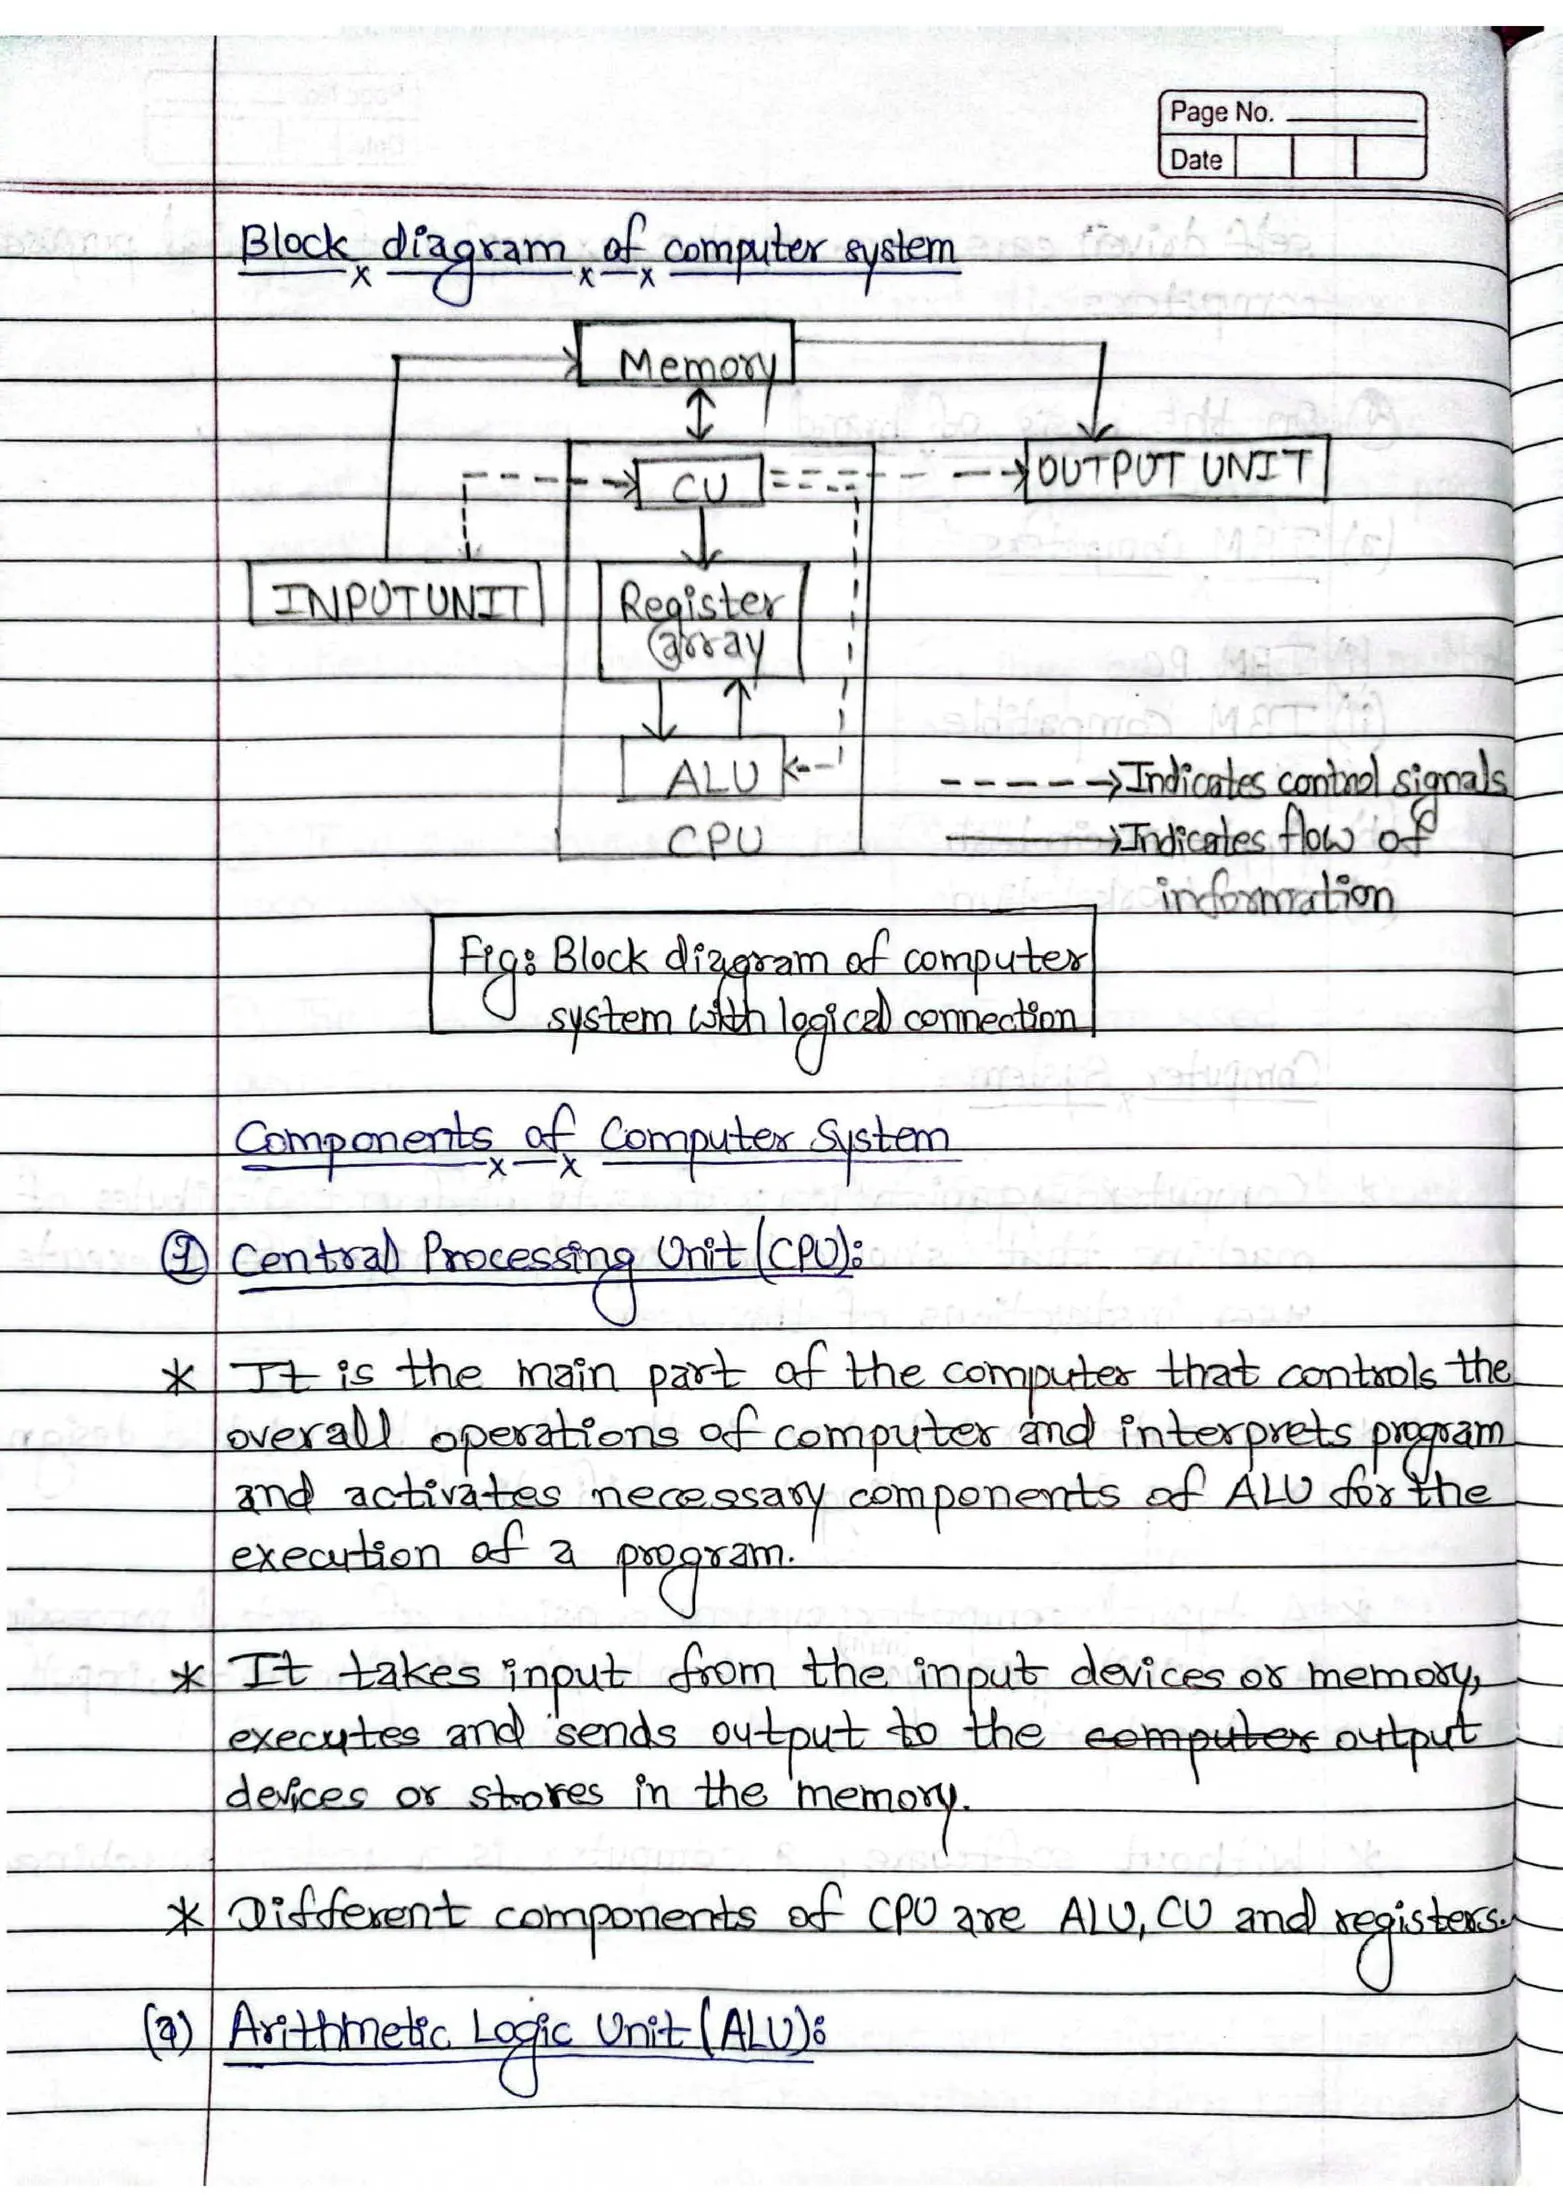 Page No.
Date
Block diagram of computer system
Memory
CU
OUTPUT UNIT
INPUT UNIT
Register
array
ALU
Indicates control signals
CPU
Indicates flow of
information
Fig: Block diagram of computer
system with logical connection
Components of Computer System
1 Central Processing Unit (CPU):
* It is the main part of the computer that controls the
overall operations of computer and interprets program
and activates necessary components of ALU for the
execution of a program.
* It takes input from the input devices or memory,
executes and sends output to the computer output
devices or stores in the memory.
* Different components of CPU are ALU, CU and registers.
(a) Arithmetic Logic Unit (ALU):